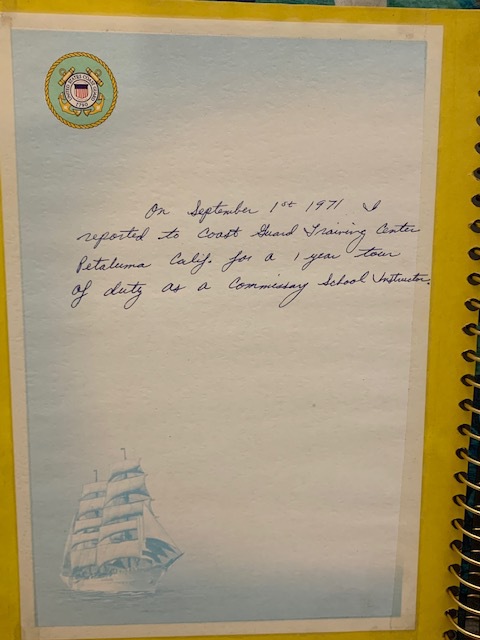 UNITED STATES COAST GUARD
1790
On September 1st 1971 I
reported to Coast Guard Training Center
Petaluma Calif. for a 1 year tour
of duty as a Commissary School Instructor.